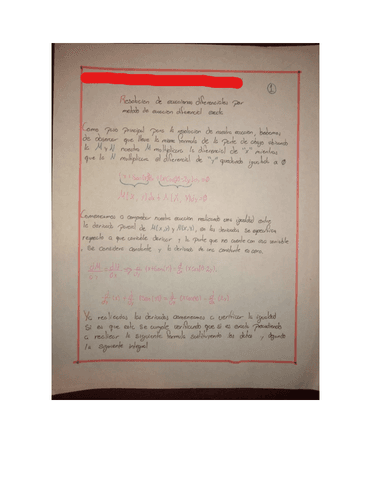 Resolución de ecuaciones diferenciales por
metodo de ecuacion diferencial exacta
Como paso principal para la resolución de nuestra ecuación, debemos
de observar que lleve la misma formula de la parte de abajo ubicando
la M y N nuestra M multiplicara la diferencial de "x" mientras
que la N multiplicara al diferencial de "y" quedando igualado a 0
Comenzaremos a comprobar nuestra ecuacion realizando una igualdad entre
la derivada parcial de M(x, y) y N(x, y), en las derivadas se especifica
respecto a que variable derivar y la parte que no cuente con esa variable
, se considera constante y la derivada de una constante es cero.
Ya realizadas las derivadas comenzaremos a verificar la igualdad
Si es que esta se cumple verificando que si es exacta procediendo
a realizar la siguiente formula sustituyendo los datos y siguiendo
la siguiente integral